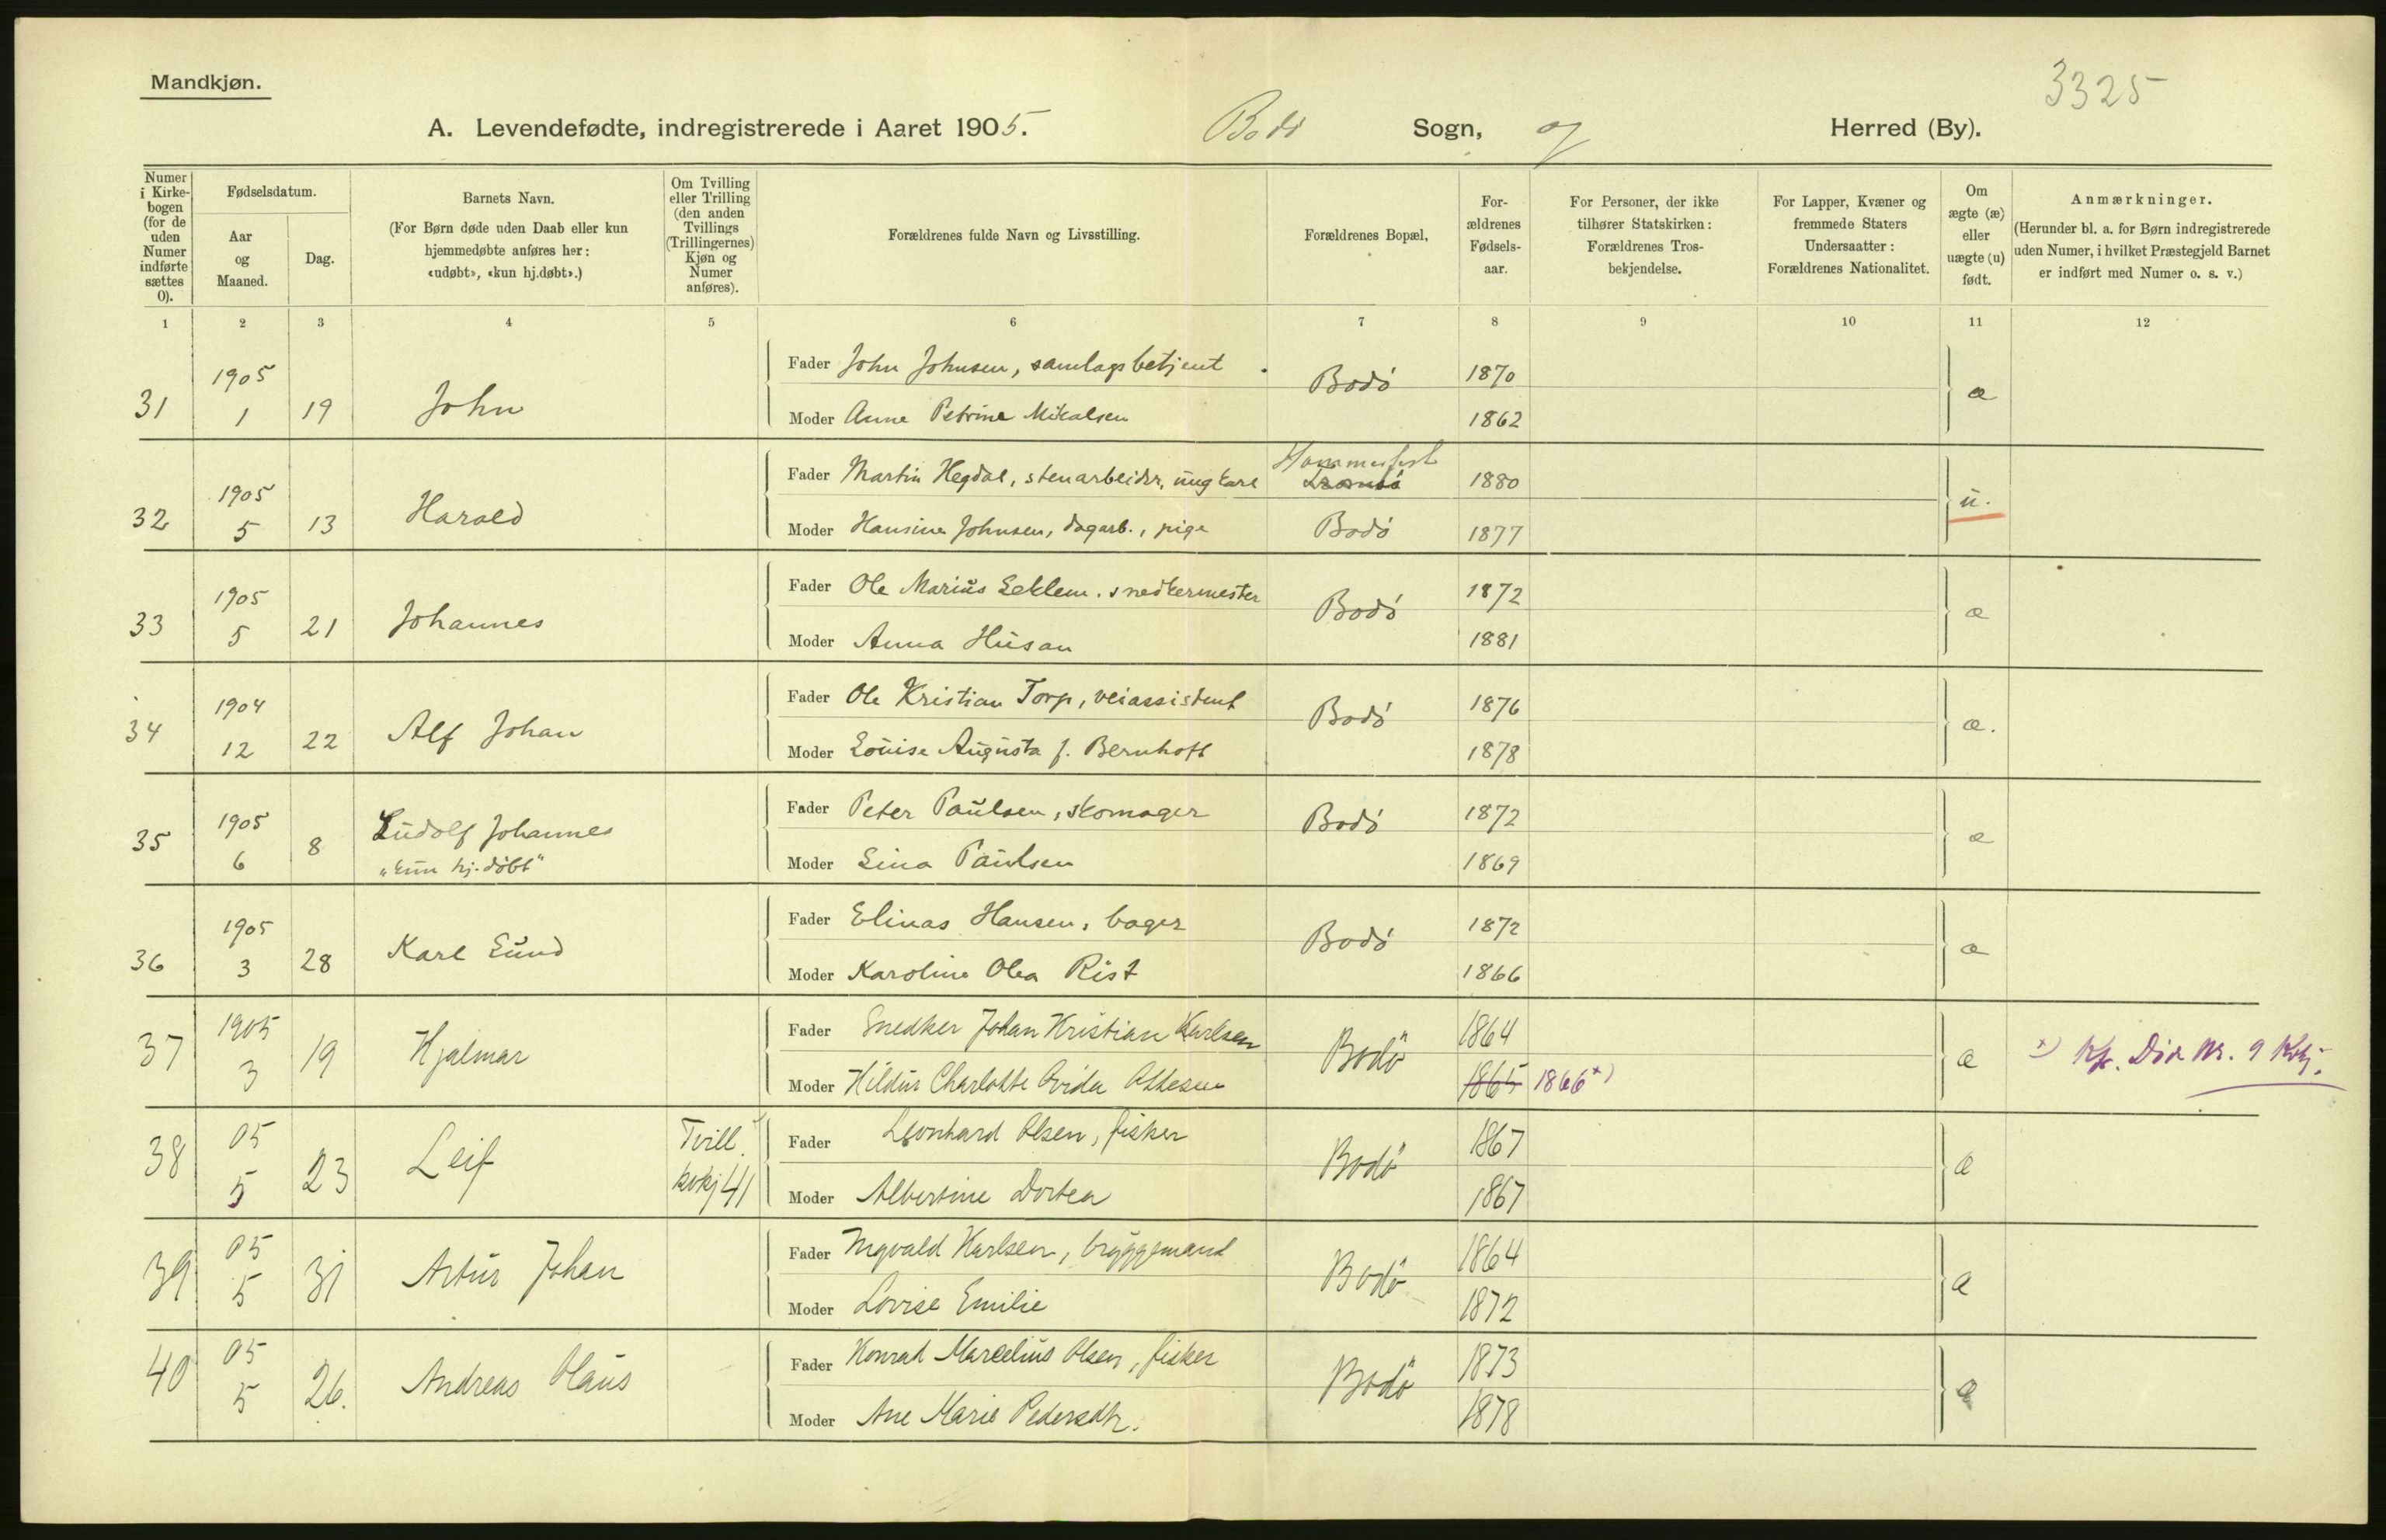 Mandkjøn.
3325
A. Levendefødte, indregistrerede i Aaret 1905. Bodø Sogn, og Herred (By).
Numer i Kirkebogen (for de uden Numer indførte sættes 0).
Fødselsdatum.
Aar og Maaned.
Dag.
Barnets Navn.
(For Børn døde uden Daab eller kun hjemmedøbte anføres her: «udøbt», «kun hj.døbt».)
Om Tvilling eller Trilling (den anden Tvillings (Trillingernes) Kjøn og Numer anføres).
Forældrenes fulde Navn og Livsstilling.
Forældrenes Bopæl.
Forældrenes Fødselsaar.
For Personer, der ikke tilhører Statskirken: Forældrenes Trosbekjendelse.
For Lapper, Kvæner og fremmede Staters Undersaatter: Forældrenes Nationalitet.
Om ægte (æ) eller uægte (u) født.
Anmærkninger.
(Herunder bl. a. for Børn indregistrerede uden Numer, i hvilket Præstegjeld Barnet er indført med Numer o. s. v.)
1 2 3 4 5 6 7 8 9 10 11 12
31 1905 1 19 John
Fader John Johnsen, samlagsbetjent Bodø 1870 æ
Moder Anne Petrine Mikalsen 1862
32 1905 5 13 Harald
Fader Martin Hegdal, stenarbeider, ungkarl Hammerfest Tromsø 1880 u.
Moder Hansine Johnsen, dagarb., pige Bodø 1877
33 1905 5 21 Johannes
Fader Ole Marius Leklem, snedkermester Bodø 1872 æ
Moder Anna Husan 1881
34 1904 12 22 Alf Johan
Fader Ole Kristian Torp, veiassistent Bodø 1876 æ.
Moder Louise Augusta f. Bernhoft 1878
35 1905 6 8 Ludolf Johannes
„kun hj. døbt“
Fader Peter Paulsen, skomager Bodø 1872 æ
Moder Lina Paulsen 1869
36 1905 3 28 Karl Lund
Fader Elinas Hansen, bager Bodø 1872 æ
Moder Karoline Olea Rist 1866
37 1905 3 19 Hjalmar
Fader Snedker Johan Kristian Karlsen Bodø 1864 æ x) Kfr. Diø Nr. 9 Kvkj.
Moder Hildur Charlotte Ovida Ottesen 1865 1866 x)
38 05 5 23 Leif Tvill. kvkj 41
Fader Leonhard Olsen, fisker Bodø 1867 æ
Moder Albertine Dortea 1867
39 05 5 31 Artur Johan
Fader Ingvald Karlsen, bryggemand Bodø 1864 æ
Moder Lovise Emilie 1872
40 05 5 26. Andreas Olaus
Fader Konrad Marcelius Olsen, fisker Bodø 1873 æ
Moder Ane Marie Pedersdtr. 1878